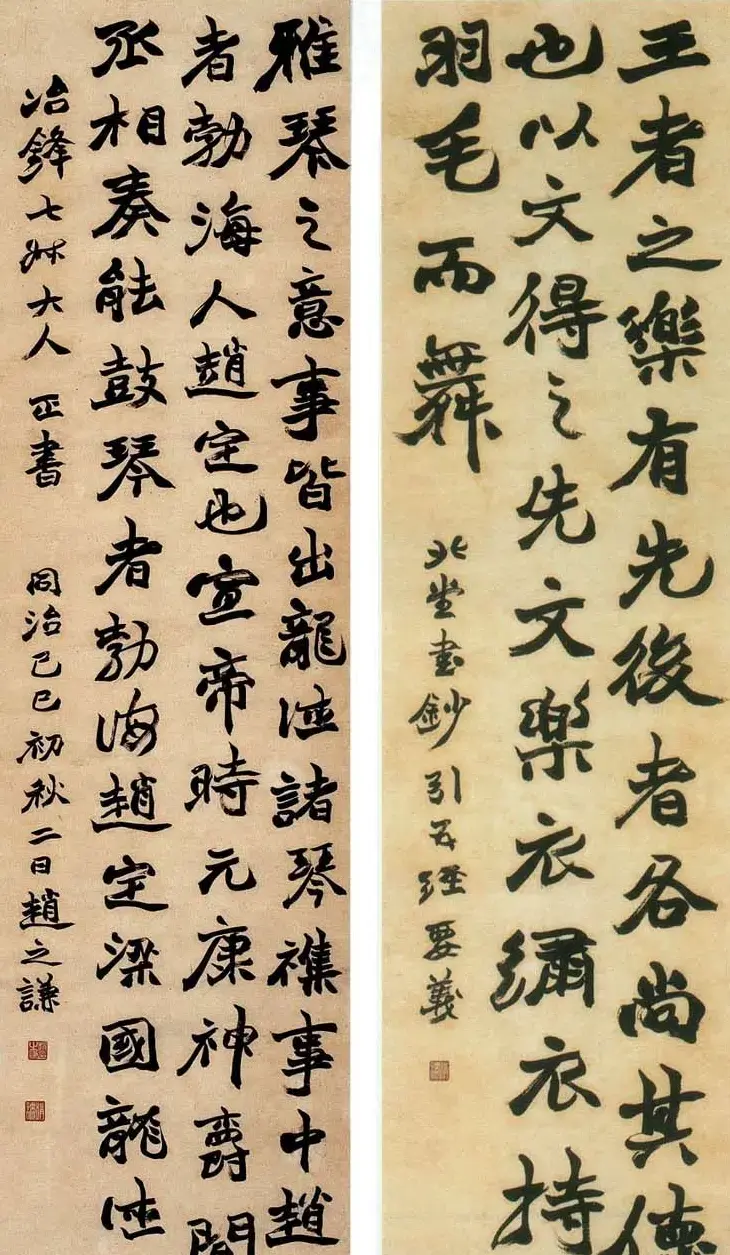 王者之樂有先後者各尚其德
也以文得之先文樂衣繡衣持
羽毛而舞
北堂書鈔引五經要義
雅琴之意事皆出龍德諸琴襍事中趙
者勃海人趙定也宣帝時元康神爵間
丞相奏能鼓琴者勃海趙定梁國龍德
冶鋒七叔大人 正書 同治己巳初秋二日趙之謙